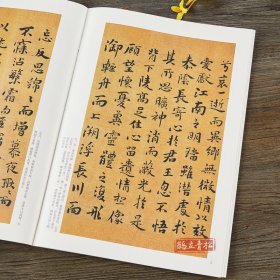 兮哀一逝而異鄉無微情以效
愛獻江南之明璫雖潛處於
泰陰長寄心於君王忽不悟
其所舍悵神消而蔽光於是
背下陵高足往神留遺情想像
顧望懷憂冀靈體之復形
御輕舟而上溯浮長川而
忘反思綿綿而增慕夜耿耿而
不寐沾繁霜而
鶴立青松